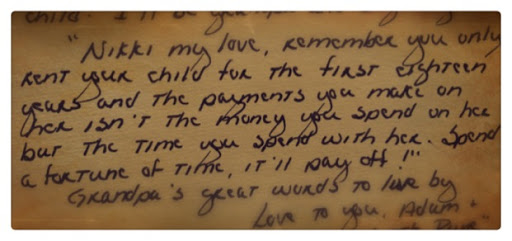 child. I'll be
"Nikki my love, remember you only
rent your child for the first eighteen
years and the payments you make on
her isn't the money you spend on her
but the time you spend with her. Spend
a fortune of time, it'll pay off!"
Grandpa's great words to live by
Love to you, Adam